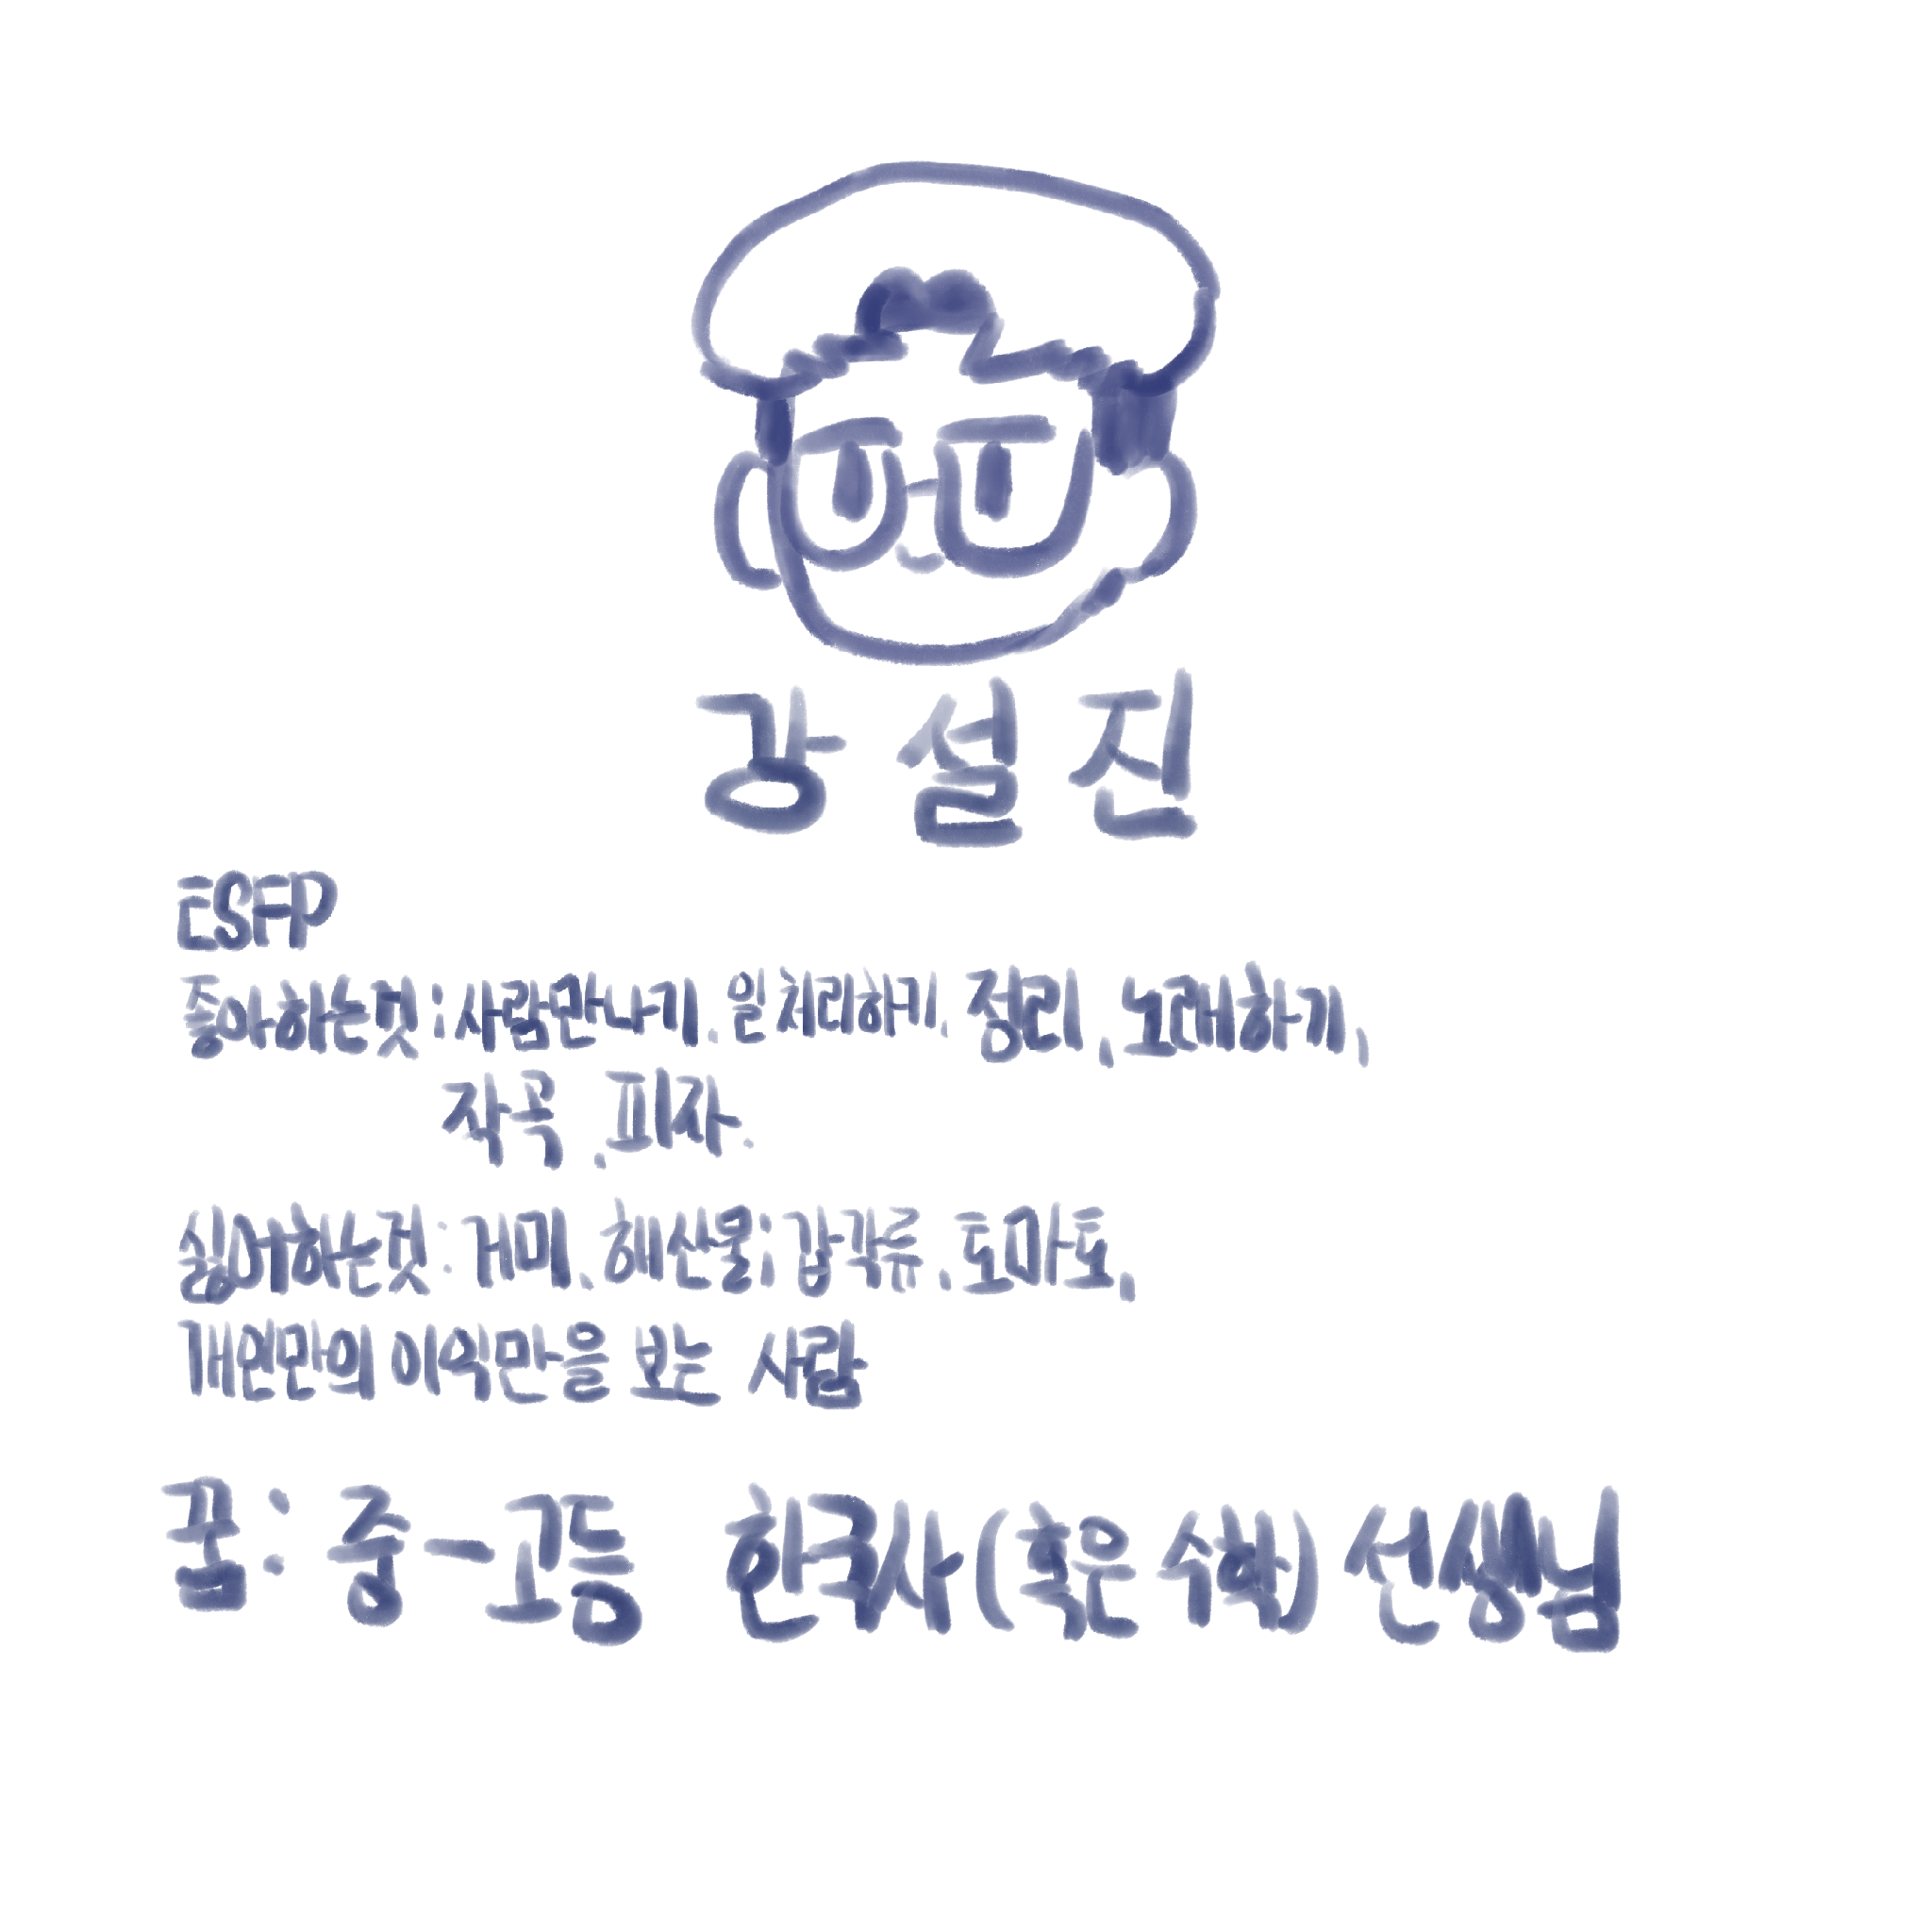 강설진
ESFP
좋아하는것:사람만나기, 일처리하기, 정리, 노래하기,
작곡, 피자.
싫어하는것: 거미, 해산물;갑각류, 토마토,
개인만의 이익만을 보는 사람
꿈: 중-고등 한국사(혹은 수학) 선생님